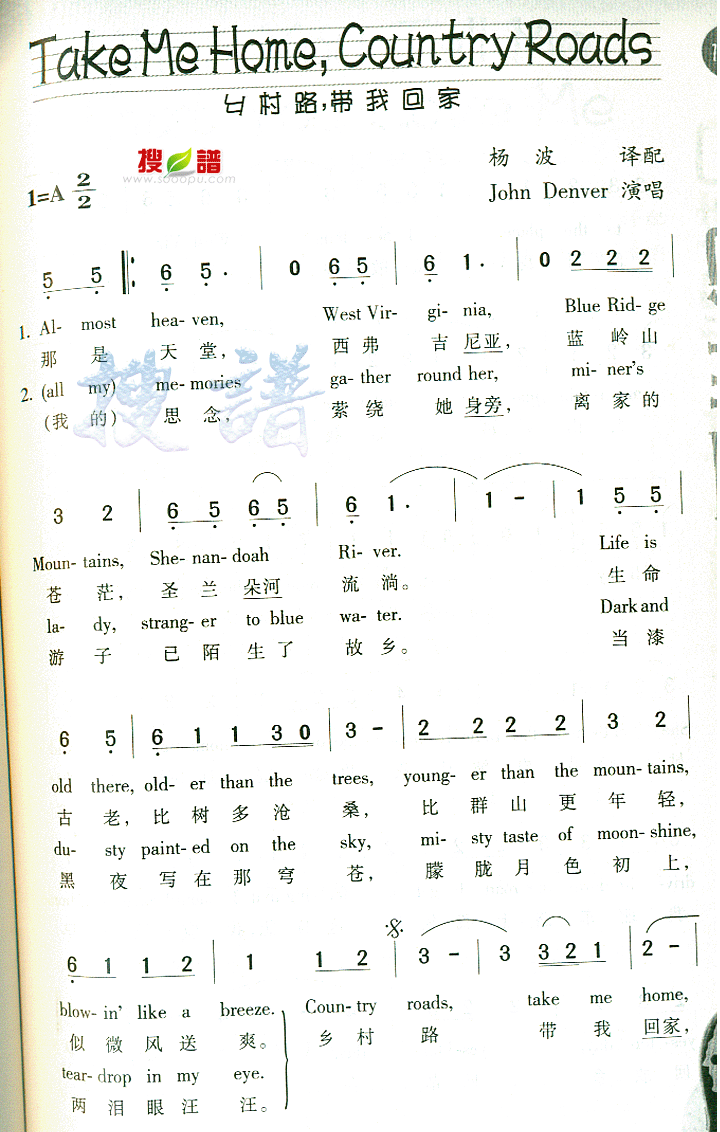 Take Me Home, Country Roads
乡村路,带我回家
搜 譜
www.sooopu.com
杨 波 译配
1=A 2/2
John Denver 演唱
5 5 6 5. 0 6 5 6 1. 0 2 2 2
1. Al- most hea- ven, West Vir- gi- nia, Blue Rid- ge
那 是 天 堂, 西 弗 吉 尼亚, 蓝 岭 山
2. (all my) me- mories ga- ther round her, mi- ner's
(我 的) 思 念, 萦 绕 她 身旁, 离 家 的
搜 譜
3 2 6 5 6 5 6 1. 1 - 1 5 5
Moun- tains, She- nan- doah Ri- ver. Life is
苍 茫, 圣 兰 朵河 流 淌。 生 命
la- dy, strang- er to blue wa- ter. Dark and
游 子 已 陌 生 了 故 乡。 当 漆
6 5 6 1 1 3 0 3 - 2 2 2 2 3 2
old there, old- er than the trees, young- er than the moun- tains,
古 老, 比 树 多 沧 桑, 比 群 山 更 年 轻,
du- sty paint- ed on the sky, mi- sty taste of moon- shine,
黑 夜 写 在 那 穹 苍, 朦 胧 月 色 初 上,
6 1 1 2 1 1 2 3 - 3 3 2 1 2 -
blow- in' like a breeze. Coun- try roads, take me home,
似 微 风 送 爽。 乡 村 路 带 我 回家,
tear- drop in my eye.
两 泪 眼 汪 汪。